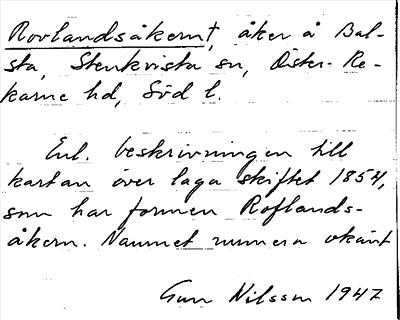 Rovlandsåkern†, åker å Bal-
sta, Stenkvista sn, Öster-Re-
karne hd, Söd l.
Enl. beskrivningen till
kartan över laga skiftet 1854,
som har formen Roflands-
åkern. Namnet numera okänt
Gun Nilsson 1947